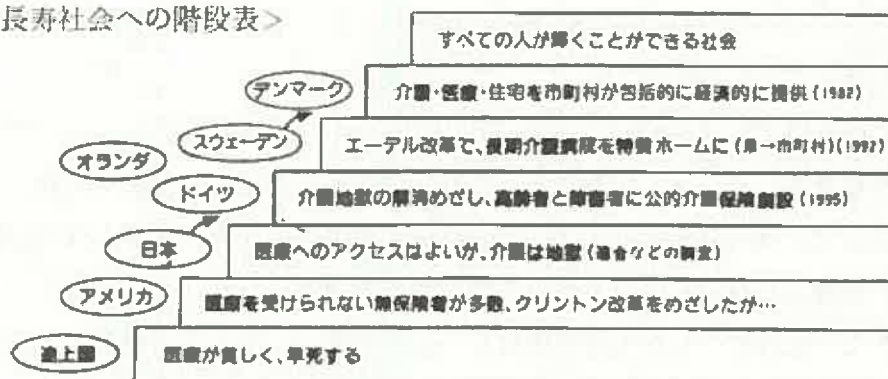 長寿社会への階段表>
すべての人が輝くことができる社会
デンマーク
介護・医療・住宅を市町村が包括的に経済的に提供(1982)
スウェーデン
エーデル改革で、長期介護病院を特養ホームに(県→市町村)(1992)
オランダ
ドイツ
介護地獄の解消めざし、高齢者と障害者に公的介護保険創設(1995)
日本
医療へのアクセスはよいが、介護は地獄(連合などの調査)
アメリカ
医療を受けられない無保険者が多数、クリントン改革をめざしたが…
途上国
医療が貧しく、早死する